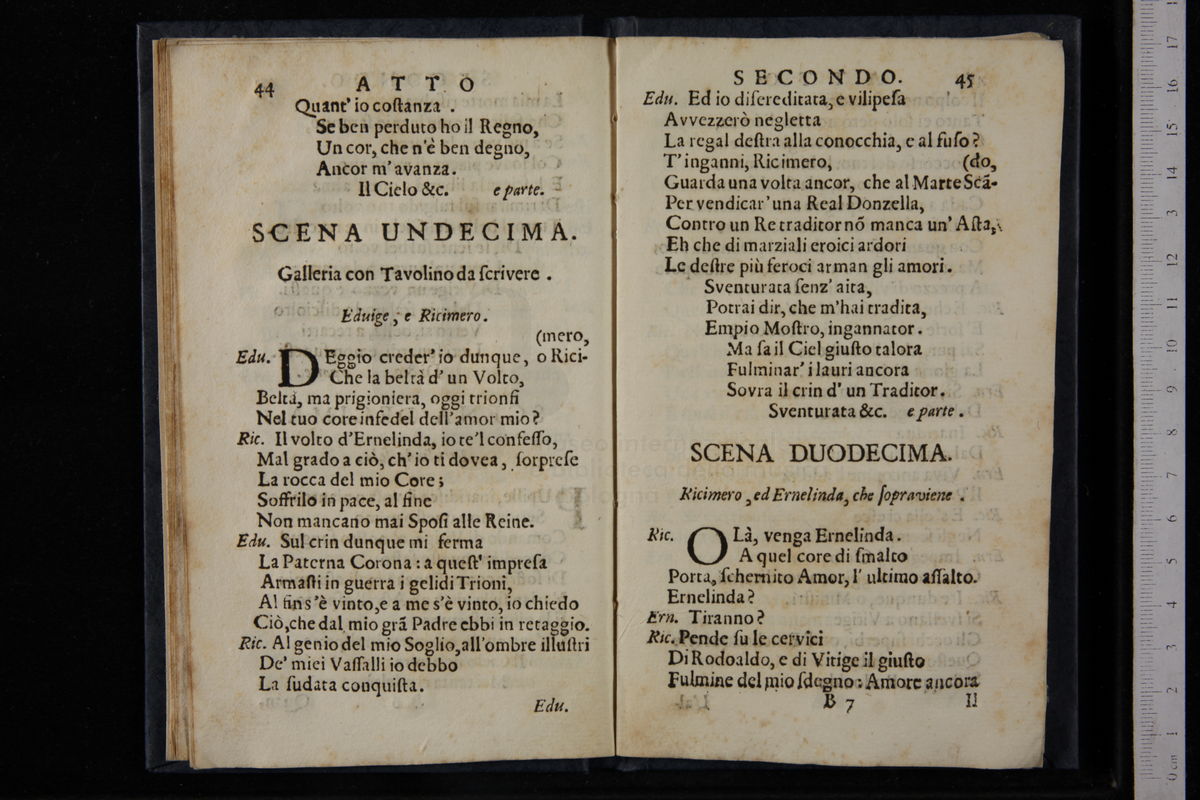 44 ATTO
Quant' io coſtanza .
Se ben perduto ho il Regno,
Un cor, che n'è ben degno,
Ancor m' avanza.
Il Cielo &c. e parte.
SCENA UNDECIMA.
Galleria con Tavolino da ſcrivere .
Eduige, e Ricimero.
(mero,
Edu. DEggio creder' io dunque, o Rici-
Che la beltà d' un Volto,
Beltà, ma prigioniera, oggi trionfi
Nel tuo core infedel dell'amor mio?
Ric. Il volto d'Ernelinda, io te'l confeſſo,
Mal grado a ciò, ch' io ti dovea, ſorpreſe
La rocca del mio Core;
Soffrilo in pace, al fine
Non mancano mai Spoſi alle Reine.
Edu. Sul crin dunque mi ferma
La Paterna Corona: a queſt' impreſa
Armaſti in guerra i gelidi Trioni,
Al fin s'è vinto, e a me s'è vinto, io chiedo
Ciò, che dal mio grã Padre ebbi in retaggio.
Ric. Al genio del mio Soglio, all'ombre illuſtri
De' miei Vaſſalli io debbo
La ſudata conquiſta.
Edu.
SECONDO. 45
Edu. Ed io diſcreditata, e vilipeſa
Avvezzerò negletta
La regal deſtra alla conocchia, e al fuſo?
T' inganni, Ricimero, (do,
Guarda una volta ancor, che al Marte Scã-
Per vendicar' una Real Donzella,
Contro un Re traditor nõ manca un' Aſta,
Eh che di marziali eroici ardori
Le deſtre più feroci arman gli amori.
Sventurata ſenz' aita,
Potrai dir, che m'hai tradita,
Empio Moſtro, ingannator.
Ma ſa il Ciel giuſto talora
Fulminar' i lauri ancora
Sovra il crin d' un Traditor.
Sventurata &c. e parte .
SCENA DUODECIMA.
Ricimero, ed Ernelinda, che ſopraviene .
Ric. OLà, venga Ernelinda.
A quel core di ſmalto
Porta, ſchernito Amor, l' ultimo aſſalto.
Ernelinda?
Ern. Tiranno?
Ric. Pende ſu le cervici
Di Rodoaldo, e di Vitige il giuſto
Fulmine del mio ſdegno: Amore ancora
B 7 Il